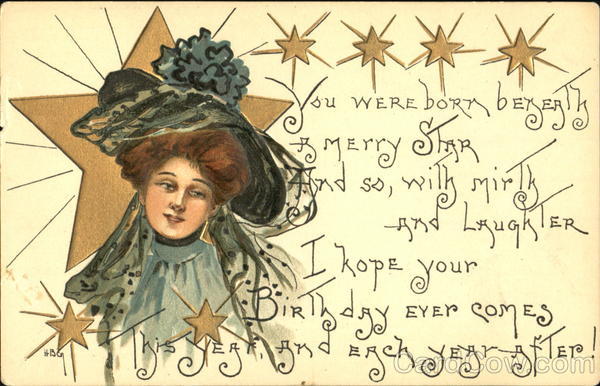 You were born beneath
a merry Star
And so, with mirth
and Laughter
I hope your
Birthday ever comes
This year, and each year after!
HBG
CardCow.com